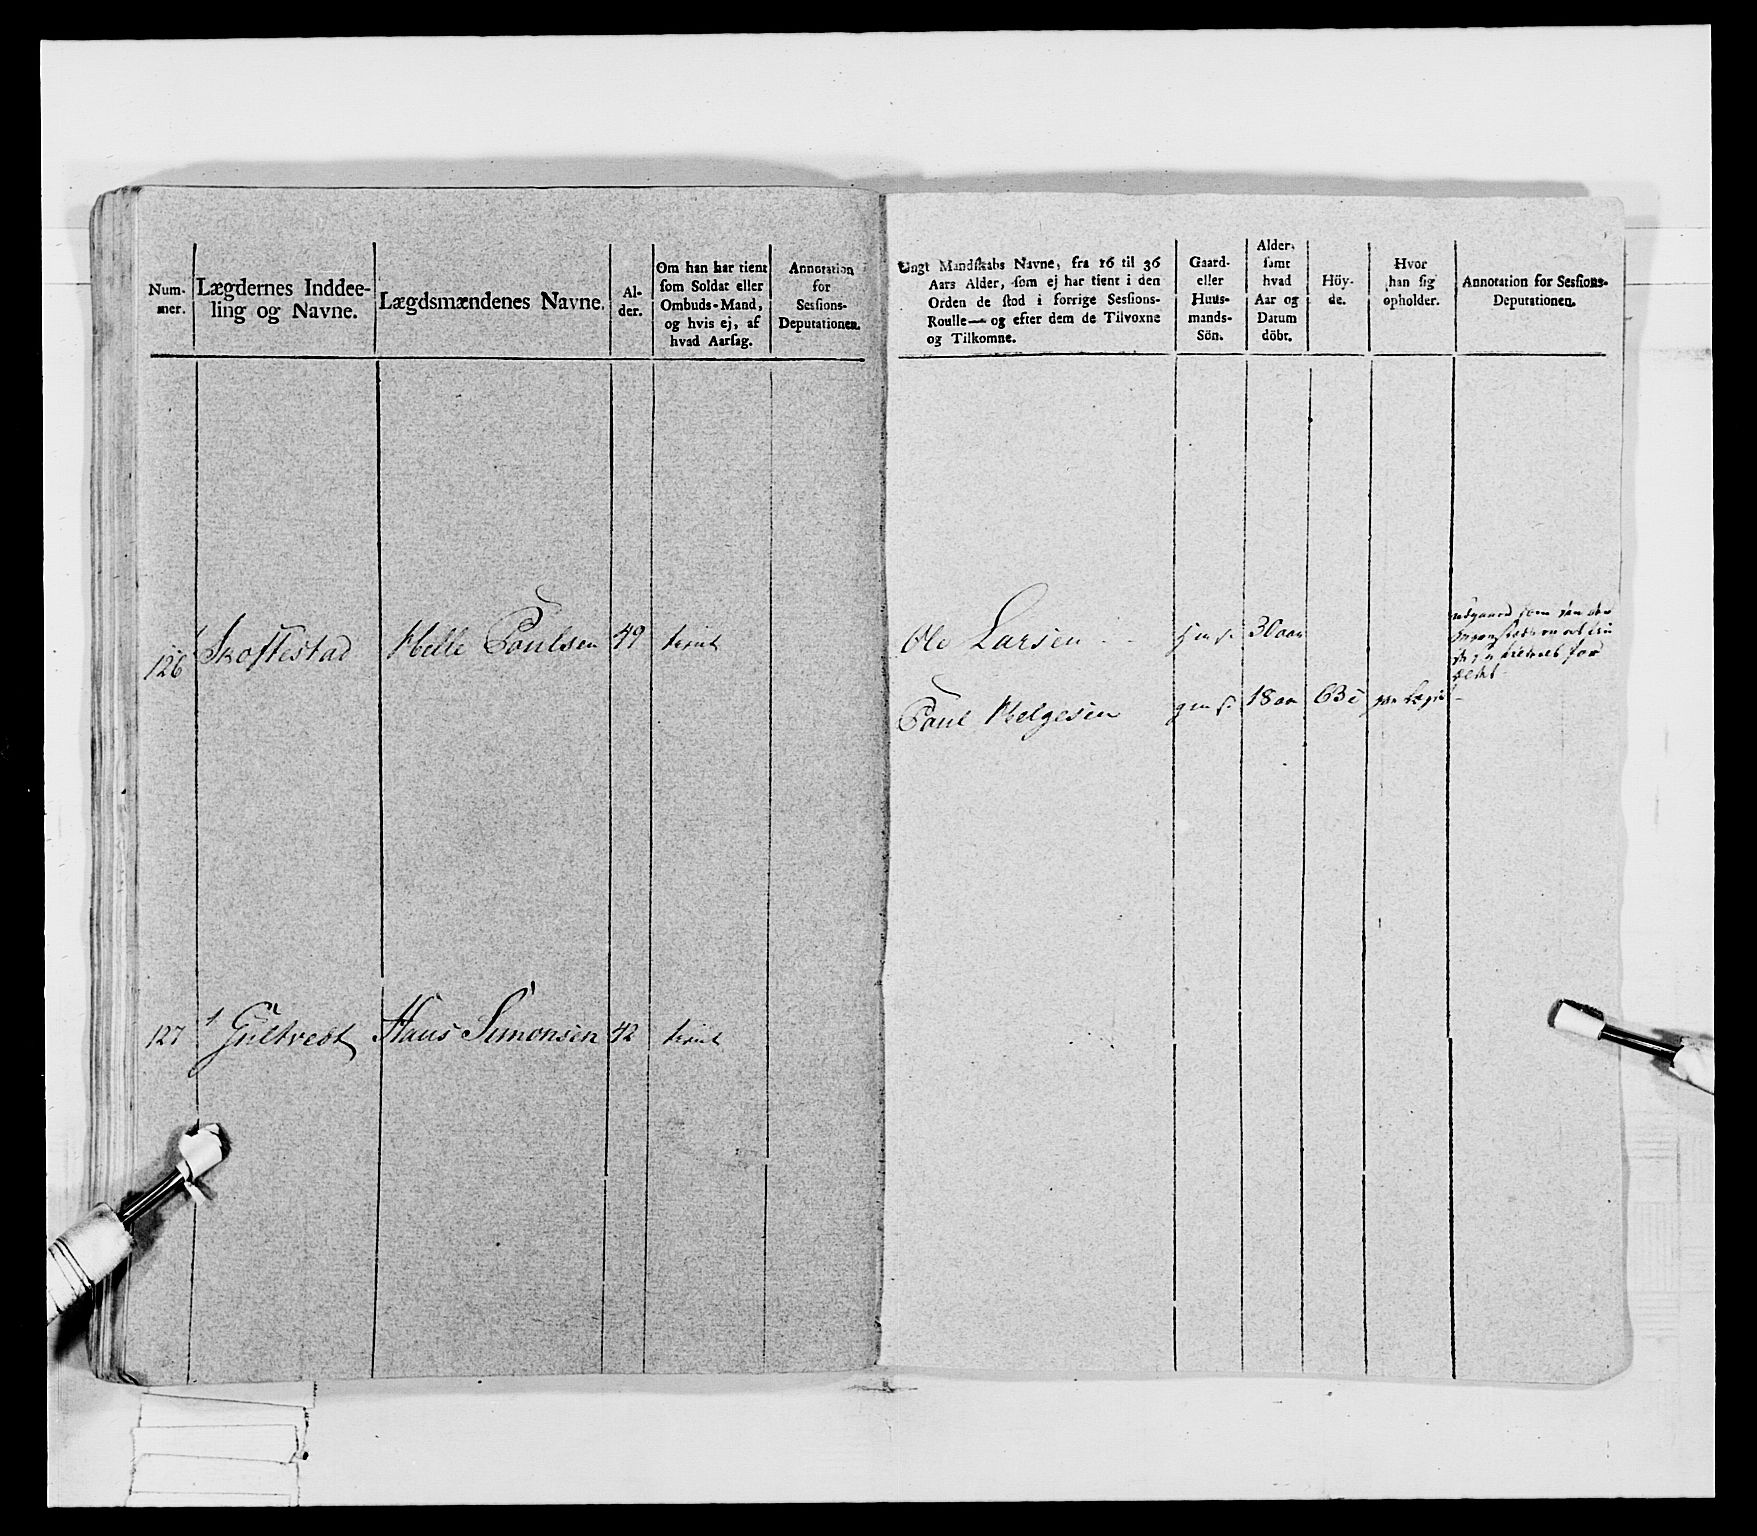 Num-
mer.
Lægdernes Inddee-
ling og Navne.
Lægdsmændenes Navne.
Al-
der.
Om han har tient
som Soldat eller
Ombuds-Mand,
og hvis ej, af
hvad Aarsag.
Annotation
for
Sessions-
Deputationen.
126 Skoftestad Helle Poulsen 49 tient
127 Gültvedt Hans Simonsen 42 tient
Ungt Mandskabs Navne, fra 16 til 36
Aars Alder, som ej har tient i den
Orden de stod i forrige Sessions-
Roulle — og efter dem de Tilvoxne
og Tilkomne.
Gaard-
eller
Huus-
mands-
Sön.
Alder,
samt
hvad
Aar og
Datum
döbt.
Höy-
de.
Hvor
han sig
opholder.
Annotation for Sessions-
Deputationen.
Ole Larsen 30 aar
Poul Helgesen 18 aar